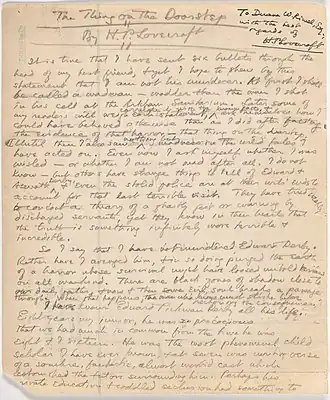 The Thing on the Doorstep
To Duane W. Rimel, Esq,
with the best
regards of
H P Lovecraft
By H. P. Lovecraft
It is true that I have sent six bullets through the
head of my best friend, & yet I hope to show by this
statement that I am not his murderer. At first I shall
be called a madman — madder than the man I shot
in his cell at the Arkham Sanitarium. Later some of
my readers will weigh each statement,
& ask themselves how I
could have believed otherwise after facing
the evidence of that horror — that thing on the doorstep.
Until then I also saw madness in the wild tales I
have acted on. Even now I ask myself whether I was
misled — or whether I am not mad after all. I do not
know — but others have strange things to tell of Edward &
Asenath Derby, & even the stolid police are at their wits' ends to
account for that last terrible visit. They have tried
to concoct a theory of a ghastly jest or warning by
discharged servants, yet they know in their hearts that
the truth is something infinitely more terrible &
incredible.
So I say that I have not murdered Edward Derby.
Rather have I avenged him, & in so doing purged the earth
of a horror whose survival might have loosed untold terrors
on all mankind. There are black zones of shadow close to
our daily paths, & now & then some evil soul breaks a passage
through. When that happens, the man who knows must strike before
reckoning the consequences
I have known Edward Pickman Derby all his life.
Eight years my junior, he was so precocious
that we had much in common from the time he was
eight & I sixteen. He was the most phenomenal child
scholar I have ever known, & at seven was writing verse
of a sombre, fantastic, almost morbid cast which
astonished the tutors surrounding him. Perhaps his
private education & coddled seclusion had something to